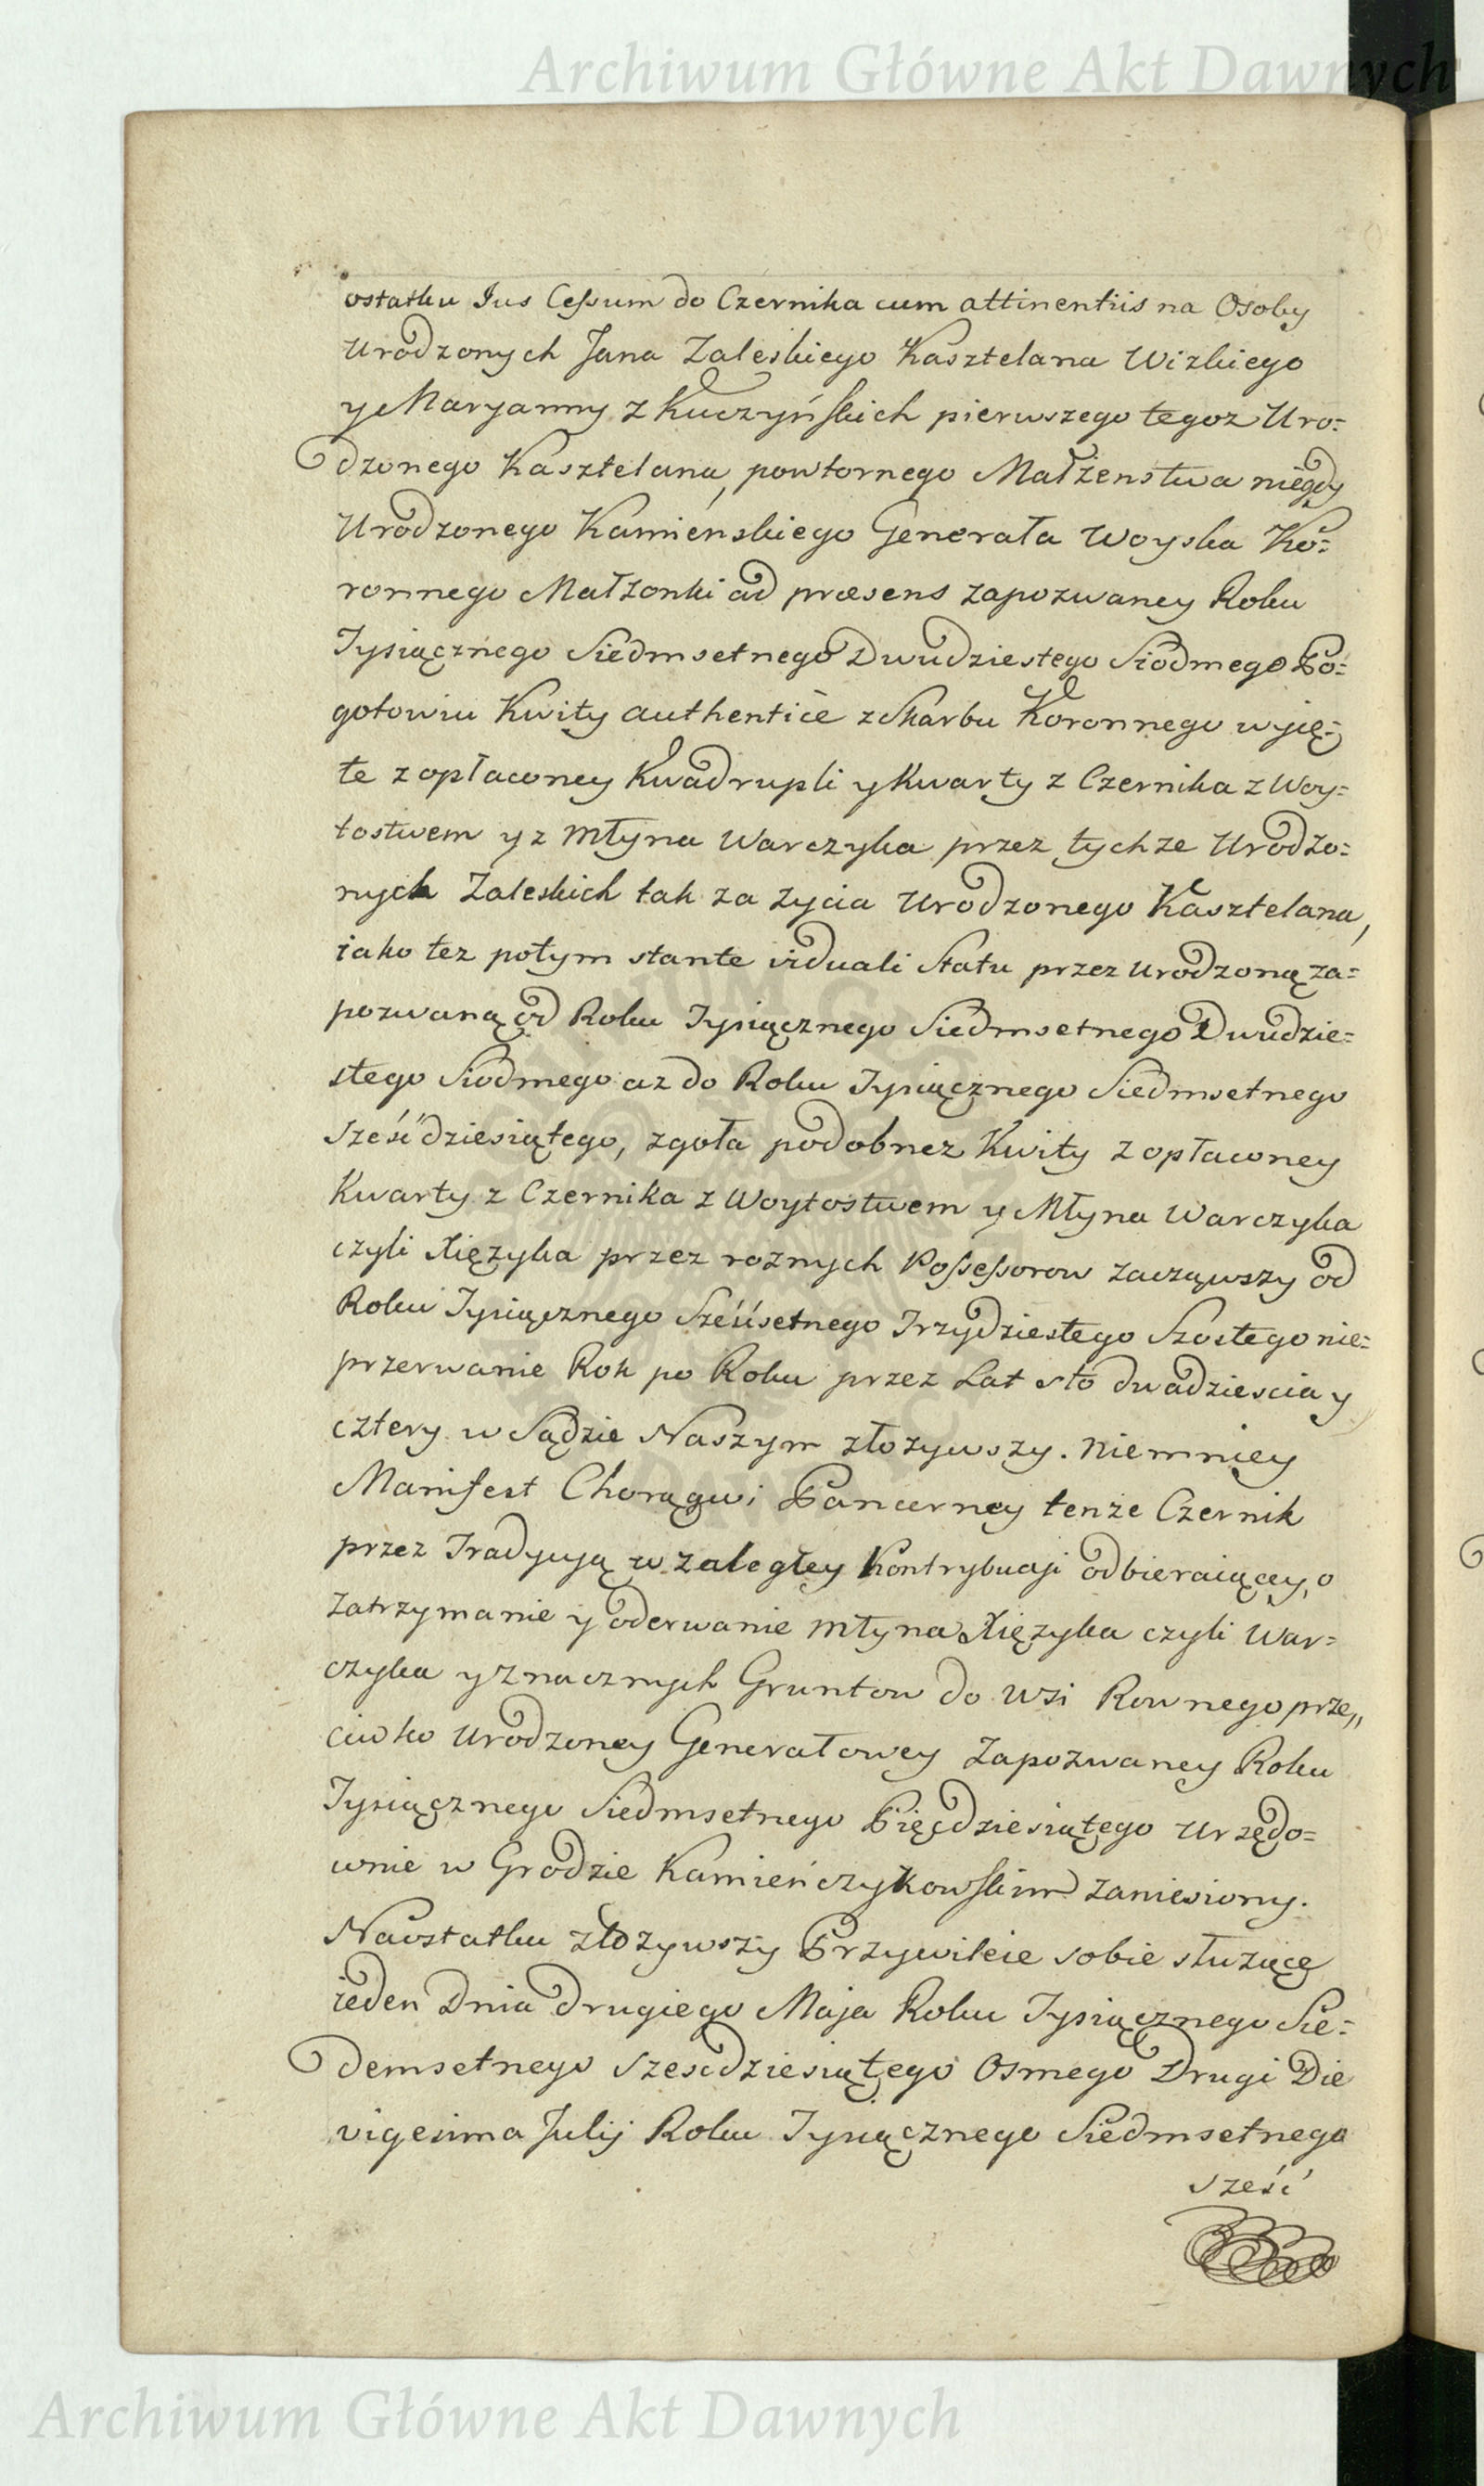 Archiwum Główne Akt Dawnych
ostatku Jus Cessum do Czernika cum attinentiis na Osoby
Urodzonych Jana Zaleskiego Kasztelana Wizkiego
y Maryanny z Kuczyńskich pierwszego tegoz Uro=
dzonego Kasztelana, powtornego Małżenstwa niegdy
Urodzonego Kamienskiego Generała Woyska Ko=
ronnego Małzonki ad præsens zapozwaney Roku
Tysiącznego Siedmsetnego Dwudziestego Siodmego Po=
gotowiu Kwity authenticè z Skarbu Koronnego wyię=
te z opłaconey Kwadrupli y Kwarty z Czernika z Woy=
tostwem y z Młyna Warczyka przez tychze Urodzo=
nych Zaleskich tak za zycia Urodzonego Kasztelana,
iako tez potym stante viduali Statu przez Urodzoną za=
pozwaną od Roku Tysiącznego Siedmsetnego Dwudzie=
stego Siodmego az do Roku Tysiącznego Siedmsetnego
Sześćdziesiątego, zgoła podobnez Kwity z opłaconey
Kwarty z Czernika z Woytostwem y Młyna Warczyka
czyli Xięzyka przez roznych Possessorow zacząwszy od
Roku Tysiącznego Sześćsetnego Trzydziestego Szostego nie=
przerwanie Rok po Roku przez Lat sto dwadziescia y
cztery w Sądzie Naszym złozywszy. Niemniey
Manifest Chorągwi Pancerney tenże Czernik
przez Tradycyą w zaległey Kontrybucyi odbieraiącey, o
zatrzymanie y oderwanie Młyna Xięzyka czyli War=
czyka y znacznych Gruntow do Wsi Rownego prze„
ciwko Urodzoney Generałowey Zapozwaney Roku
Tysiącznego Siedmsetnego Pięćdziesiątego Urzędo=
wnie w Grodzie Kamieńczykowskim zaniesiony.
Naostatku złozywszy Przywileie sobie słuzące
ieden Dnia Drugiego Maja Roku Tysiącznego Sie=
demsetnego Szescdziesiątego Osmego Drugi Die
vigesima Julij Roku Tysiącznego Siedmsetnego
Sześć
Archiwum Główne Akt Dawnych